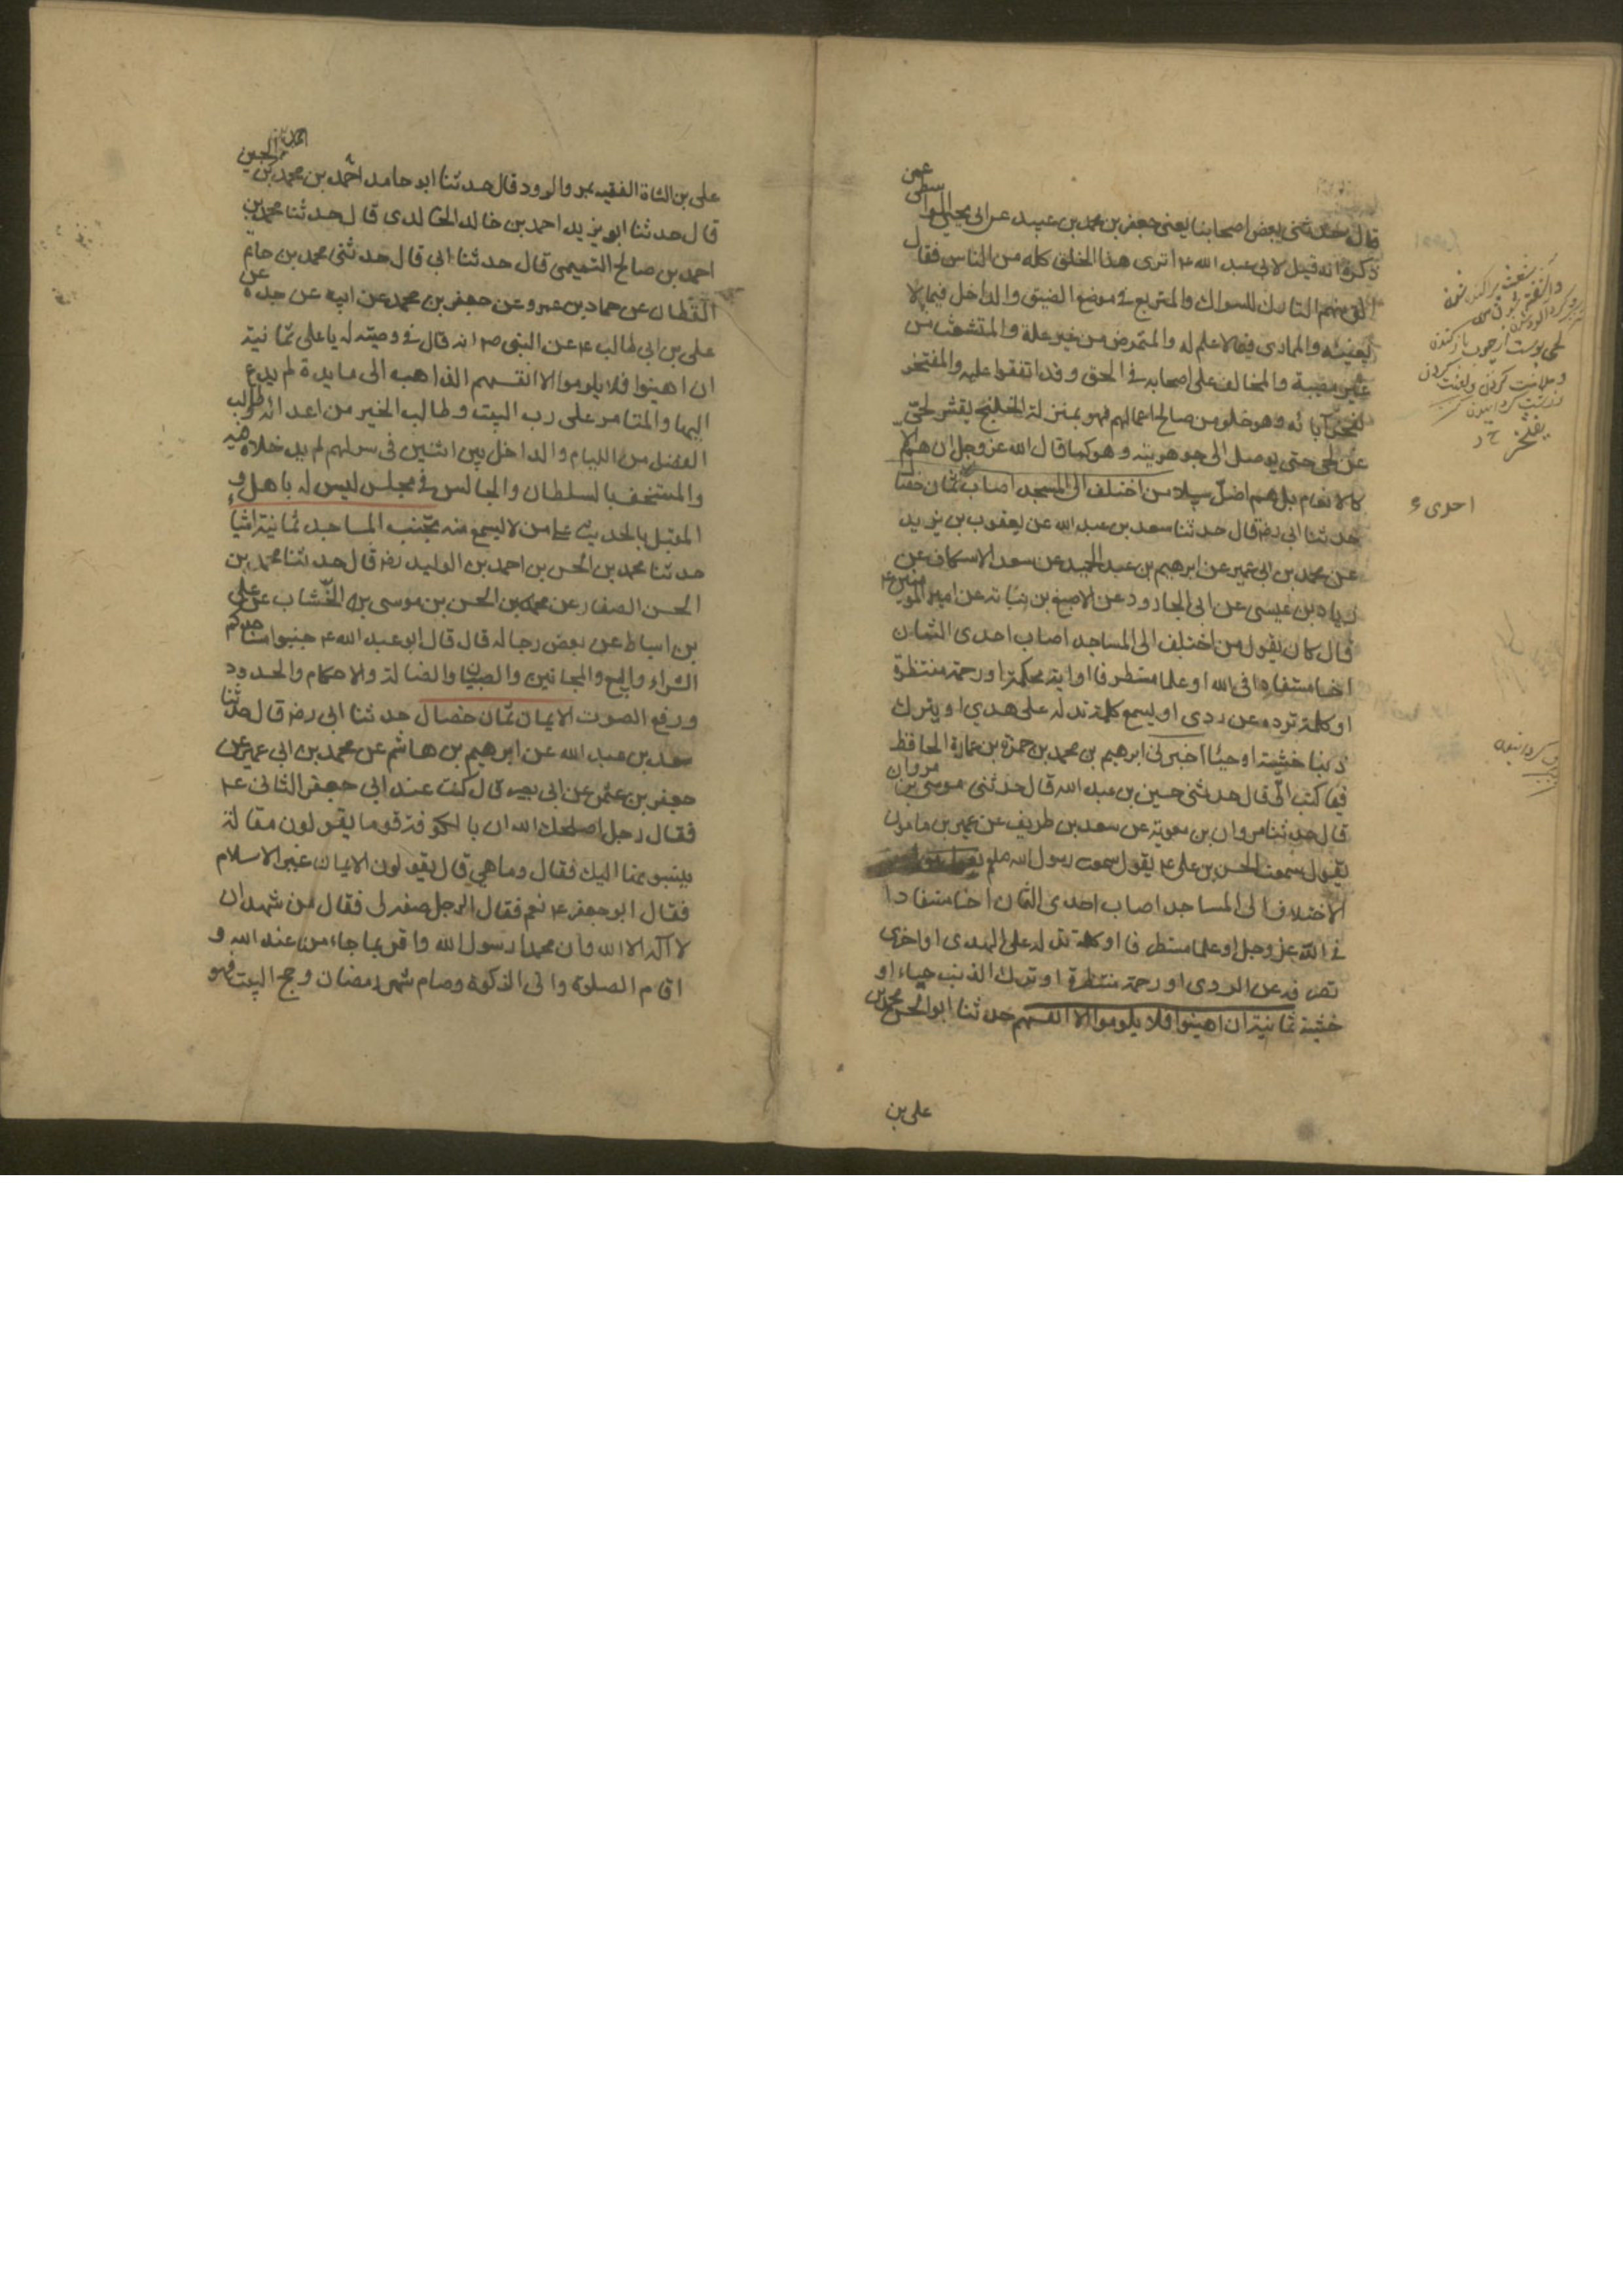 قال حدثنى بعض اصحابنا يعنى جعفر بن محمد بن عبيد عن ابى يحيى الواسطى عمن
ذكره انه قيل لابى عبد الله ع اترى هذا الخلق كله من الناس فقال
الق منهم التارك للسواك والمتربع فى موضع الضيق والداخل فيما لا
يعنيه والممارى فيما لا علم له والمتمرض من غير علة والمتشعث من
غير مصيبة والمخالف على اصحابه فى الحق وقد اتفقوا عليه والمفتخر
بآبائه وهو خلو من صالح اعمالهم فهو بمنزلة الخلنج يقشر لحى
عن لحى حتى يوصل الى جوهريته وهو كما قال الله عز وجل ان هم الا
كالانعام بل هم اضل سبيلا من اختلف الى المسجد اصاب ثمان خصال
حدثنا ابى رضه قال حدثنا سعد بن عبد الله عن يعقوب بن يزيد
عن محمد بن ابى عمير عن ابرهيم بن عبد الحميد عن سعد الاسكاف عن
زياد بن عيسى عن ابى الجارود عن الاصبغ بن نباتة عن امير المؤمنين ع
قال كان يقول من اختلف الى المساجد اصاب احدى الثمان
اخا مستفادا فى الله او علما مستطرفا او اية محكمة او رحمة منتظرة
او كلمة ترده عن ردى او يسمع كلمة تدله على هدى او يترك
ذنبا خشية او حياء اخبرنى ابرهيم بن محمد بن حمزة بن عمارة الحافظ
فيما كتب الىّ قال حدثنى حسين بن عبد الله قال حدثنى موسى بن مروان
قال حدثنا مروان بن معوية عن سعد بن طريف عن عمير بن مامون
يقول سمعت الحسن بن على ع يقول سمعت رسول الله صلعم يقول
الاختلاف الى المساجد اصاب احدى الثمان اخا مستفادا
فى الله عز وجل او علما مستطرفا او كلمة تدله على الهدى او اخرى
تصرفه عن الردى او رحمة منتظرة او ترك الذنب حياء او
خشية ثمانية ان اهينوا فلا يلوموا الا انفسهم حدثنا ابو الحسن محمد بن
على بن
احدى ء
على بن الشاة الفقيه بمرو الرود قال حدثنا ابو حامد احمد بن محمد بن الحسين
قال حدثنا ابو يزيد احمد بن خالد الخالدى قال حدثنا محمد بن
احمد بن صالح التميمى قال حدثنا ابى قال حدثنى محمد بن حاتم
القطان عن حماد بن عمرو عن جعفر بن محمد عن ابيه عن جده عن
على بن ابى طالب ع عن النبى ص انه قال فى وصيته له يا على ثمانية
ان اهينوا فلا يلوموا الا انفسهم الذاهب الى مايدة لم يدع
اليها والمتامر على رب البيت وطالب الخير من اعدائه وطالب
الفضل من اللیام والداخل بين اثنين فى سر لهم لم يدخلاه فيه
والمستخف بالسلطان والجالس فى مجلس ليس له باهل و
المقبل بالحديث على من لا يسمع منه تجنب المساجد ثمانية اشياء
حدثنا محمد بن الحسن بن احمد بن الوليد رضه قال حدثنا محمد بن
الحسن الصفار عن محمد بن الحسن بن موسى بن الخشاب عن على
بن اسباط عن بعض رجاله قال قال ابو عبد الله ع جنبوا مساجدكم
الشراء والبيع والمجانين والصبيان والضالة والاحكام والحدود
ورفع الصوت الايمان ثمان خصال حدثنا ابى رضه قال حدثنا
سعد بن عبد الله عن ابرهيم بن هاشم عن محمد بن ابى عمير عن
جعفر بن عثمن عن ابى بصير قال كنت عند ابى جعفر الثانى ع
فقال رجل اصلحك الله ان بالكوفة قوما يقولون مقالة
ينسبونها اليك فقال وما هى قال يقولون الايمان غير الاسلام
فقال ابو جعفر ع نعم فقال الرجل صفه لى فقال من شهد ان
لا اله الا الله وان محمدا رسول الله واقر بما جاء من عند الله و
اقام الصلوة واتى الزكوة وصام شهر رمضان وحج البيت فهو